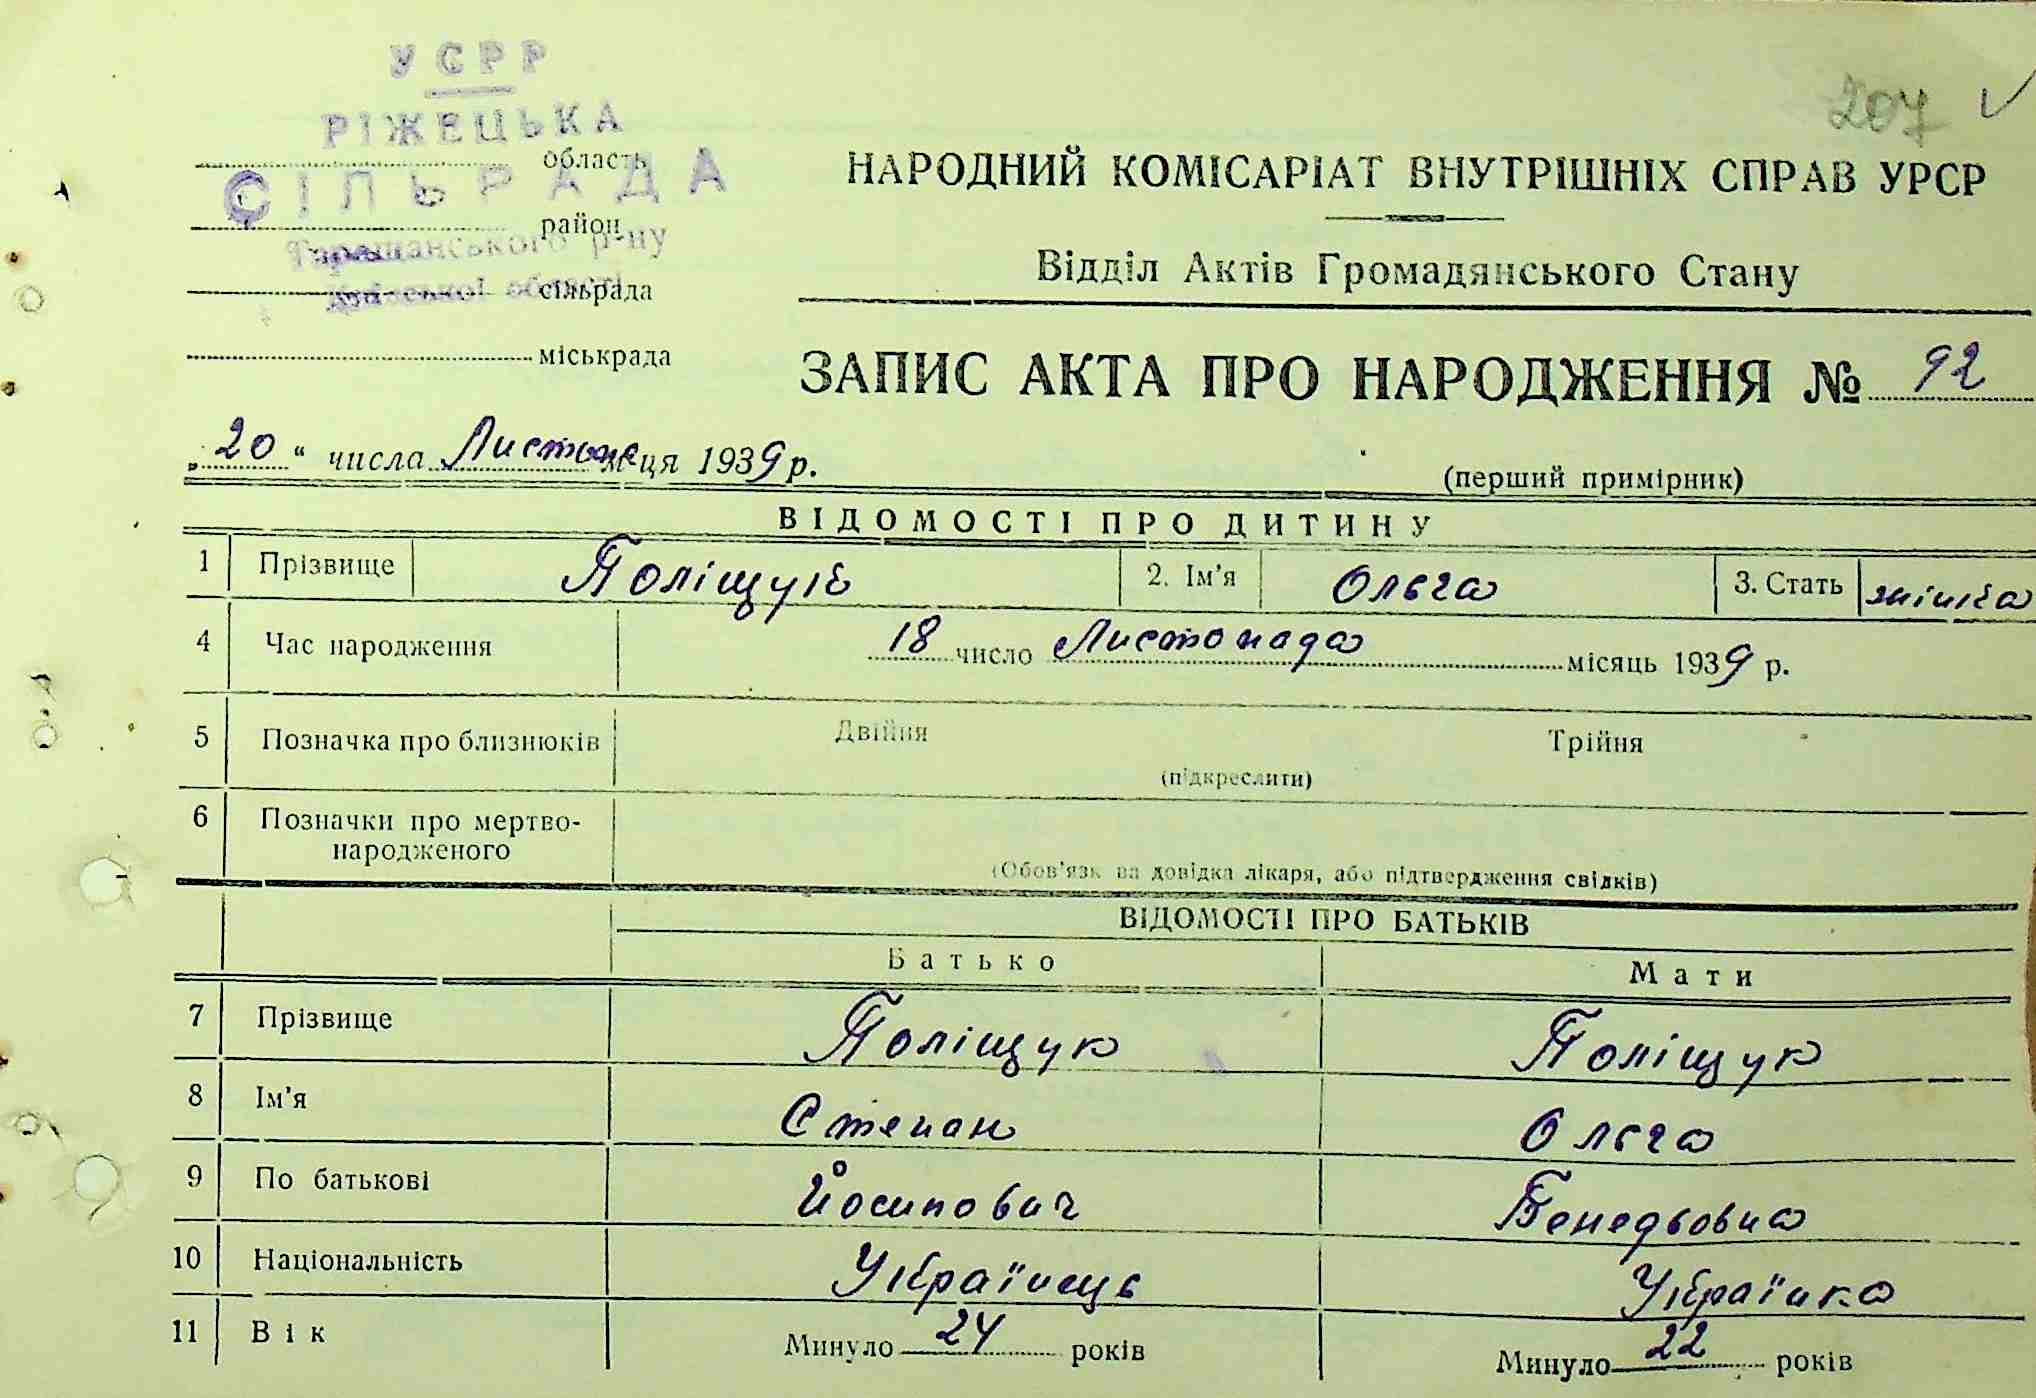 УСРР
РІЖЕЦЬКА
СІЛЬРАДА
Таращанського р-ну
Київської області
область
район
сільрада
міськрада
207 ✓
НАРОДНИЙ КОМІСАРІАТ ВНУТРІШНІХ СПРАВ УРСР
Відділ Актів Громадянського Стану
ЗАПИС АКТА ПРО НАРОДЖЕННЯ № 92
„20“ числа Листопа ця 1939 р.
(перший примірник)
ВІДОМОСТІ ПРО ДИТИНУ
1 Прізвище Поліщук 2. Ім'я Ольга 3. Стать жінка
4 Час народження 18 число Листопада місяць 1939 р.
5 Позначка про близнюків Двійня Трійня
(підкреслити)
6 Позначки про мертво-
народженого
(Обов'язк ва довідка лікаря, або підтвердження свідків)
ВІДОМОСТІ ПРО БАТЬКІВ
Батько Мати
7 Прізвище Поліщук Поліщук
8 Ім'я Степан Ольга
9 По батькові Йосипович Бенедьовна
10 Національність Українець Українка
11 Вік Минуло 24 років Минуло 22 років